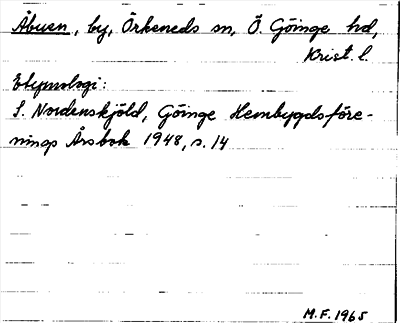 Åbuen, by, Örkeneds sn, Ö. Göinge hd,
Krist. l.
Etymologi:
S. Nordenskjöld, Göinge Hembygdsföre-
nings Årsbok 1948, s. 14
M.F. 1965